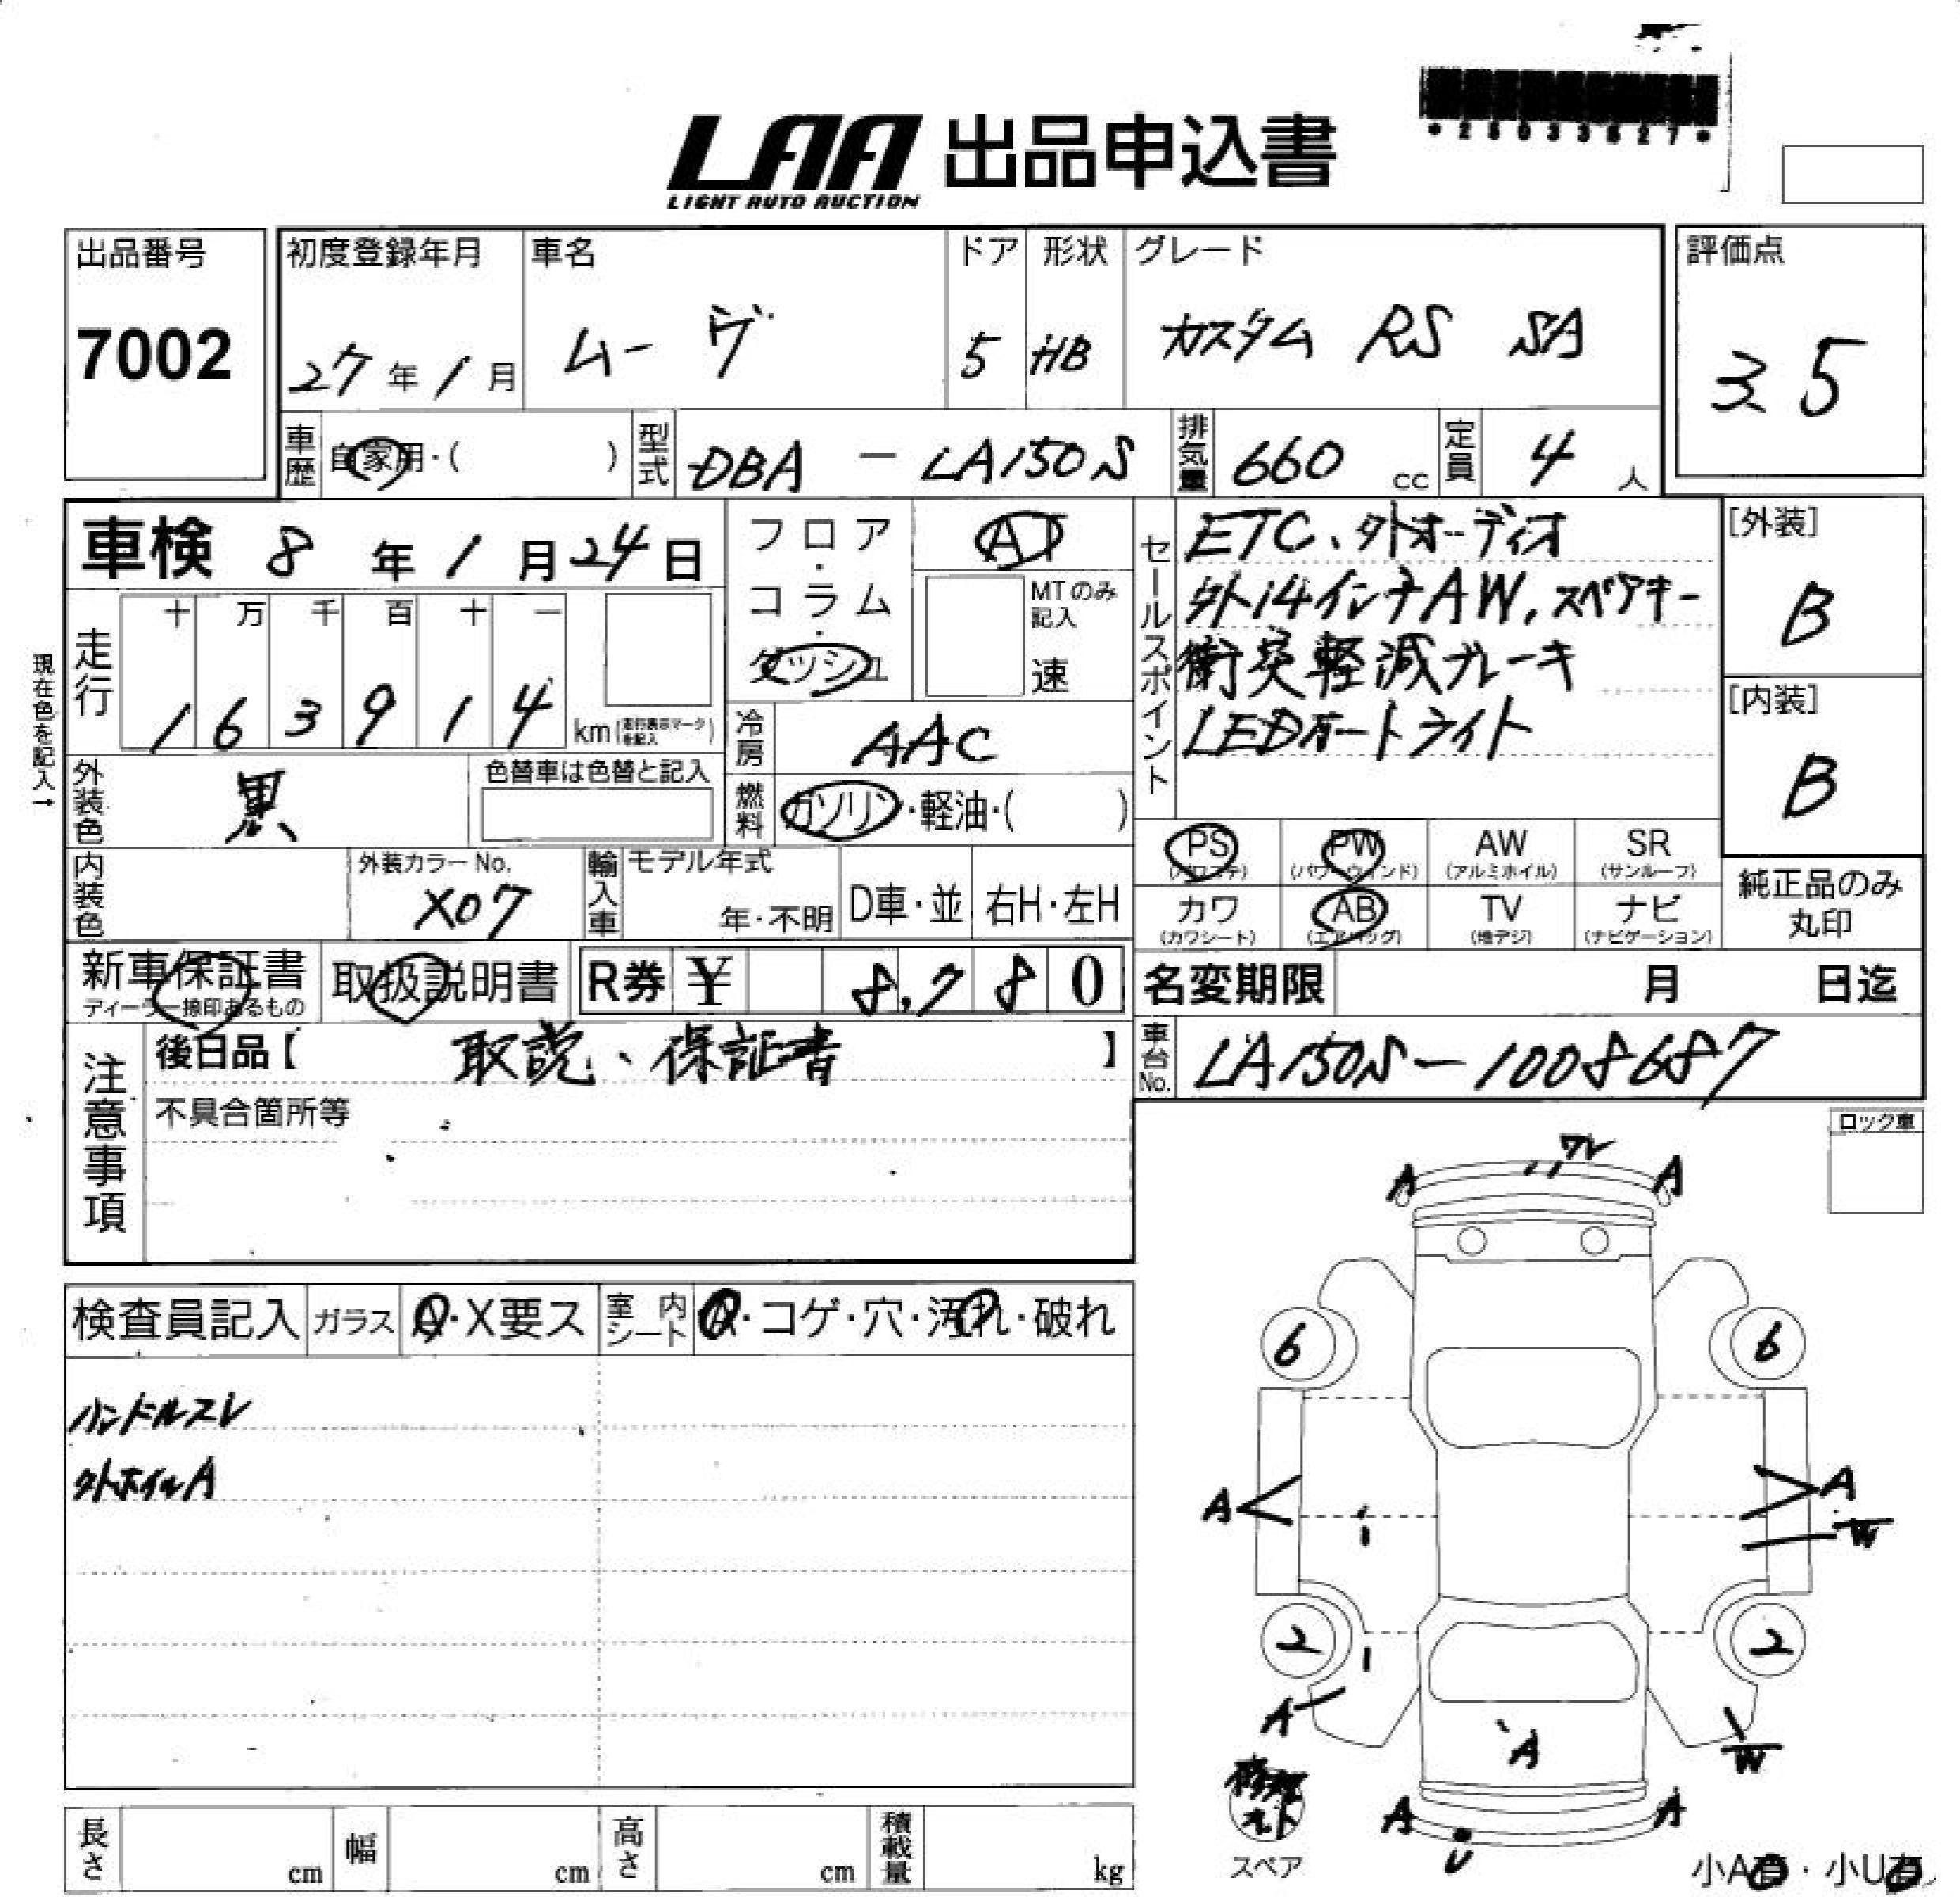 *25033627*
LAA 出品申込書
LIGHT AUTO AUCTION
出品番号 初度登録年月 車名 ドア 形状 グレード 評価点
7002 27年1月 ムーヴ 5 HB カスタム RS SA 3.5
車歴 自家用・( ) 型式 DBA - LA150S 排気量 660 cc 定員 4 人
車検 8年1月24日 フロア・コラム・ダッシュ AT
MTのみ記入 速
セールスポイント
ETC、外オーディオ
外14インチAW, スペアキー
衝突軽減ブレーキ
LEDオートライト
[外装] B
[内装] B
現在色を記入→
走行 十 万 千 百 十 一
1 6 3 9 1 4 km(走行表示マークを記入)
冷房 AAC
外装色 黒 色替車は色替と記入
燃料 ガソリン・軽油・( )
PS (パワステ) PW (パワーウィンド) AW (アルミホイル) SR (サンルーフ)
カワ (カワシート) AB (エアバッグ) TV (地デジ) ナビ (ナビゲーション)
純正品のみ丸印
内装色 外装カラーNo. X07 輸入車 モデル年式 年・不明 D車・並 右H・左H
新車保証書 ディーラー捺印あるもの 取扱説明書 R券 ¥ 8,780 名変期限 月 日迄
注意事項 後日品【 取説、保証書 】 車台No. LA150S-1008687
不具合箇所等
ロック車
ワレ
A A
検査員記入 ガラス A・X要ス 室内シート A・コゲ・穴・汚れ・破れ
ハンドルスレ
外ホイルA
6 6
A A
W
2 2
A
A W
A A
U
スペア
長さ cm 幅 cm 高さ cm 積載量 kg
小A有・小U有